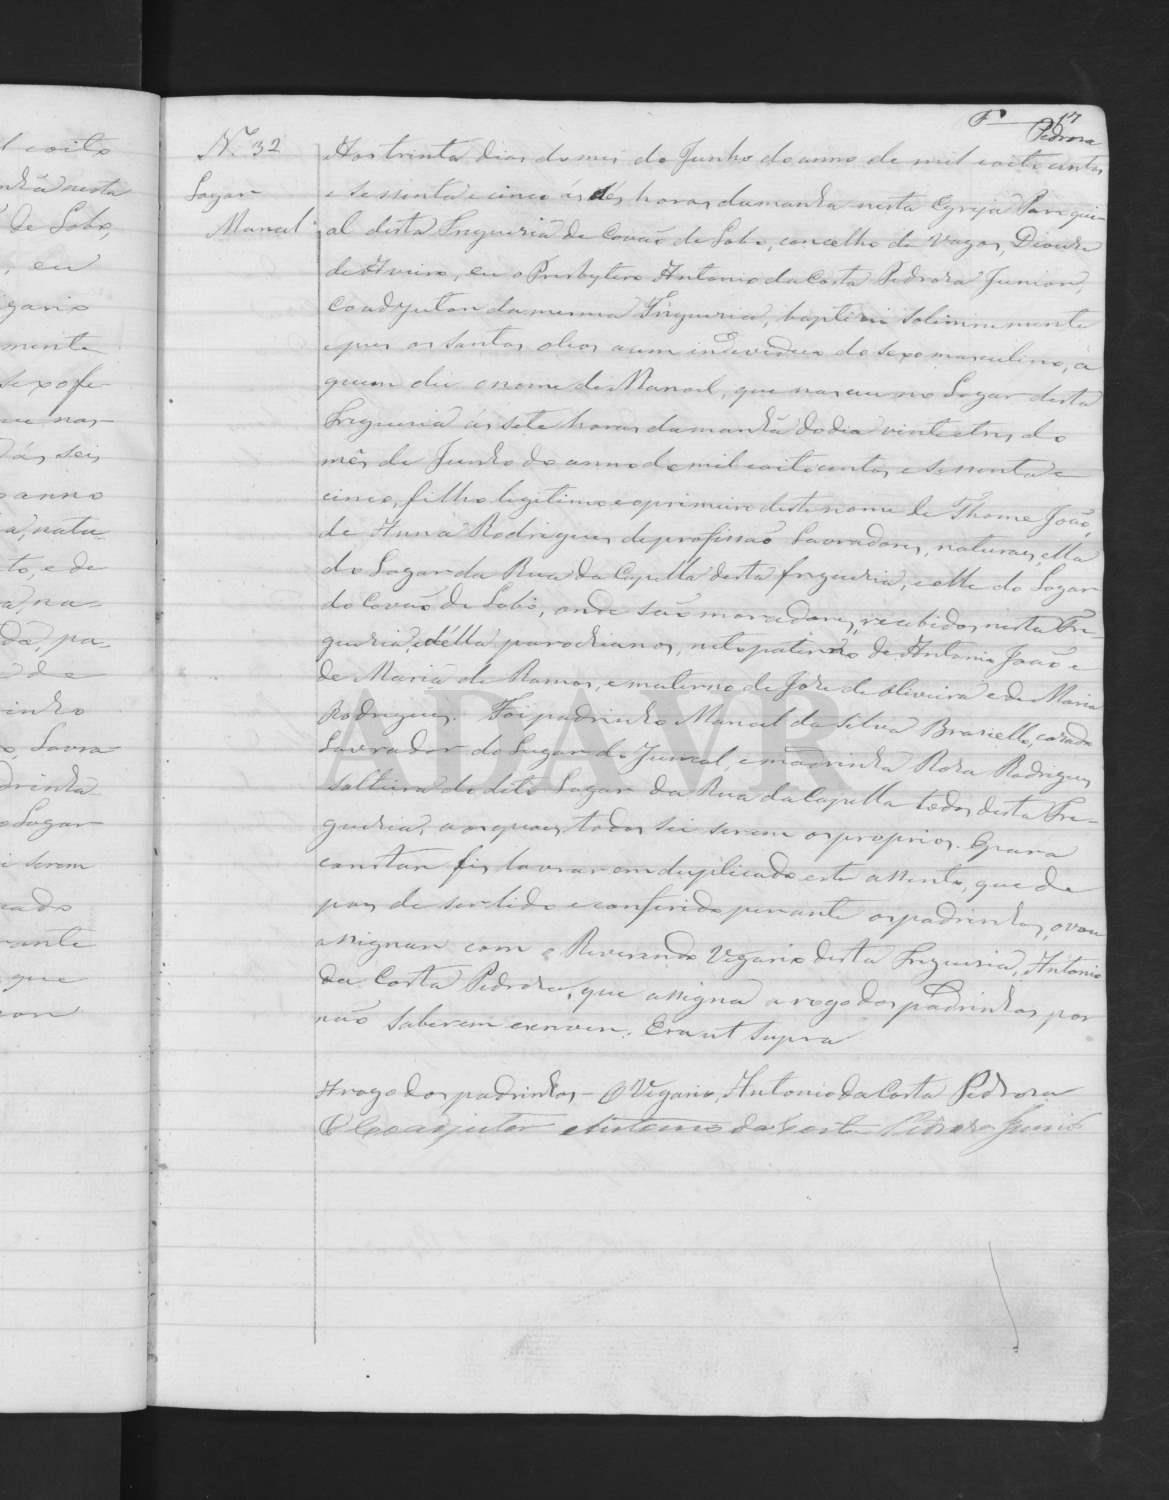 F 17
Pedroza
N. 32
Lugar
Manoel
Aos trinta dias do mes de Junho do anno de mil e oito centos
e sessenta e cinco ás dés horas da manhã nesta Egreja Parrqui-
al desta Freguesia de Covão de Lobo, concelho de Vagos, Diocese
de Aveiro, eu o Presbytero Antonio da Costa Pedroza Junior,
Coadjutor da mesma Freguesia, baptisei solemnemente
e pus os santos oleos a um individuo do sexo masculino, a
quem dei o nome de Manoel, que nasceu no Lugar desta
Freguesia ás sete horas da manhã do dia vinte e tres do
mês de Junho do anno de mil e oito centos e sessenta e
cinco, filho legitimo e o primeiro deste nome de Thome João,
de Anna Rodrigues de profissão Lavradores, naturaes, ella
do Lugar da Rua da Capella desta freguesia, e elle do Lugar
do Covão de Lobo, onde são moradores, recebidos nesta Fre-
guesia, e d'ella parochianos, neto paterno de Antonio João e
de Maria de Ramos, e materno de Joze de Oliveira e de Maria
Rodrigues. Foi padrinho Manoel da Silva casado
Lavrador do Lugar do Juncal, e madrinha Roza Rodrigues
solteira do dito Lugar da Rua da Capella todos desta Fre-
guesia, aos quaes todos sei serem os proprios. E para
constar fis lavrar em duplicado este assento, que de
pois de ser lido e conferido perante os padrinhos, o vou
assignar com o Reverendo Vigario desta Freguesia, Antonio
da Costa Pedroza, que assigna a rogo dos padrinhos por
não saberem escrever. Era ut supra
A rogo dos padrinhos - O Vigario, Antonio da Costa Pedroza
O Coadjutor Antonio da Costa Pedroza Junior
ADAVR
l e oito
nhã nesta
de Lobo,
, eu
gario
mente
sexo fe-
ue nas-
ás seis
anno
a, natu-
to, e de
a, na-
da, pa-
de
inho
, Lavra
drinha
o Lugar
i serem
cado
rante
que